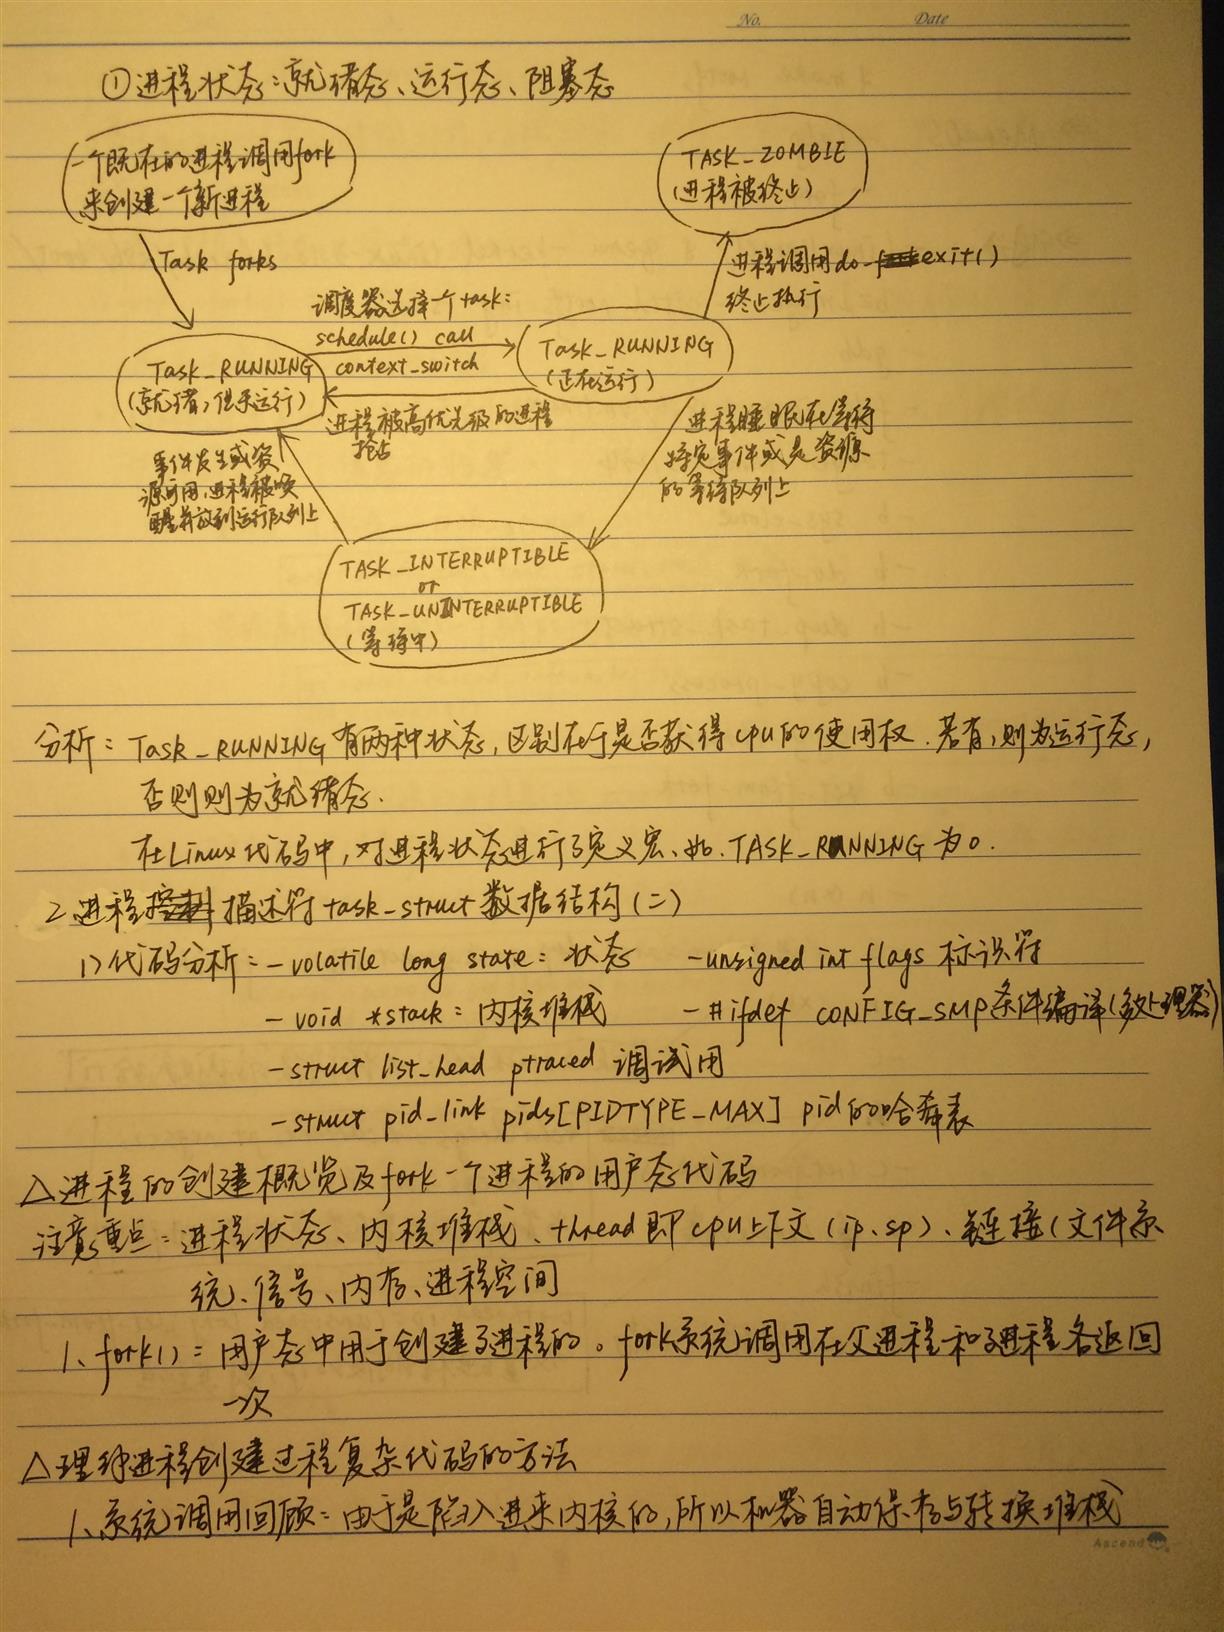 No. Date
①进程状态:就绪态、运行态、阻塞态
一个既存的进程调用fork
来创建一个新进程
TASK_ZOMBIE
(进程被终止)
Task forks
进程调用do_exit()
终止执行
调度器选择一个task:
schedule() call
context_switch
Task_RUNNING
(就绪,但未运行)
Task_RUNNING
(正在运行)
进程被高优先级的进程
抢占
进程睡眠在等待
特定事件或是资源
的等待队列上
事件发生或资
源可用,进程被唤
醒并放到运行队列上
TASK_INTERRUPTIBLE
or
TASK_UNINTERRUPTIBLE
(等待中)
分析:Task_RUNNING有两种状态,区别在于是否获得cpu的使用权.若有,则为运行态,
否则则为就绪态.
在Linux代码中,对进程状态进行了定义宏、如.TASK_RUNNING为0.
2.进程描述符task_struct数据结构(二)
1)代码分析:-volatile long state:状态 -unsigned int flags 标识符
-void *stack:内核堆栈 -#ifdef CONFIG_SMP条件编译(多处理器)
-struct list_head ptraced 调试用
-struct pid_link pids[PIDTYPE_MAX] pid的哈希表
△进程的创建概览及fork一个进程的用户态代码
注意重点:进程状态、内核堆栈、thread即cpu上下文(ip.sp)、链接(文件系
统、信号、内存、进程空间
1、fork():用户态中用于创建子进程的。fork系统调用在父进程和子进程各返回
一次
△理解进程创建过程复杂代码的方法
1、系统调用回顾:由于是陷入进来内核的,所以机器自动保存与转换堆栈
Ascend